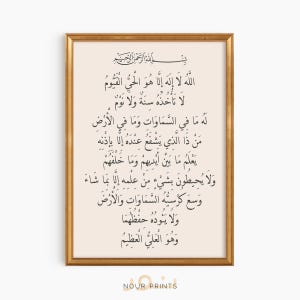 بِسْمِ اللَّهِ الرَّحْمَٰنِ الرَّحِيمِ
اللَّهُ لَا إِلَٰهَ إِلَّا هُوَ الْحَيُّ الْقَيُّومُ
لَا تَأْخُذُهُ سِنَةٌ وَلَا نَوْمٌ
لَهُ مَا فِي السَّمَاوَاتِ وَمَا فِي الْأَرْضِ
مَنْ ذَا الَّذِي يَشْفَعُ عِنْدَهُ إِلَّا بِإِذْنِهِ
يَعْلَمُ مَا بَيْنَ أَيْدِيهِمْ وَمَا خَلْفَهُمْ
وَلَا يُحِيطُونَ بِشَيْءٍ مِنْ عِلْمِهِ إِلَّا بِمَا شَاءَ
وَسِعَ كُرْسِيُّهُ السَّمَاوَاتِ وَالْأَرْضَ
وَلَا يَئُودُهُ حِفْظُهُمَا
وَهُوَ الْعَلِيُّ الْعَظِيمُ
NOUR PRINTS